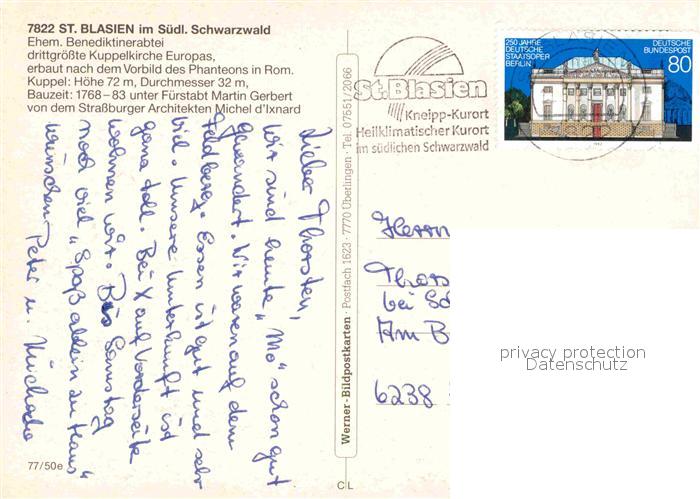 7822 ST. BLASIEN im Südl. Schwarzwald
Ehem. Benediktinerabtei
drittgrößte Kuppelkirche Europas,
erbaut nach dem Vorbild des Phanteons in Rom.
Kuppel: Höhe 72 m, Durchmesser 32 m,
Bauzeit: 1768–83 unter Fürstabt Martin Gerbert
von dem Straßburger Architekten Michel d'Ixnard
Lieber Thorsten,
wir sind heute „Mo" schon gut
gewandert. Wir waren auf dem
Feldberg. Essen ist gut und sehr
viel. Unsere Unterkunft ist
ganz toll. Bei X auf Vorderseite
wohnen wir. Bis Samstag
noch viel „Spaß allein zu Haus"
wünschen Peter u.
77/50e
Werner-Bildpostkarten · Postfach 1623 · 7770 Überlingen · Tel. 07551/2066
C L
St. Blasien
Kneipp-Kurort
Heilklimatischer Kurort
im südlichen Schwarzwald
250 JAHRE
DEUTSCHE
STAATSOPER
BERLIN
DEUTSCHE
BUNDESPOST
80
1992
Herrn
Thors
bei Sc
Am B
6238
privacy protection
Datenschutz